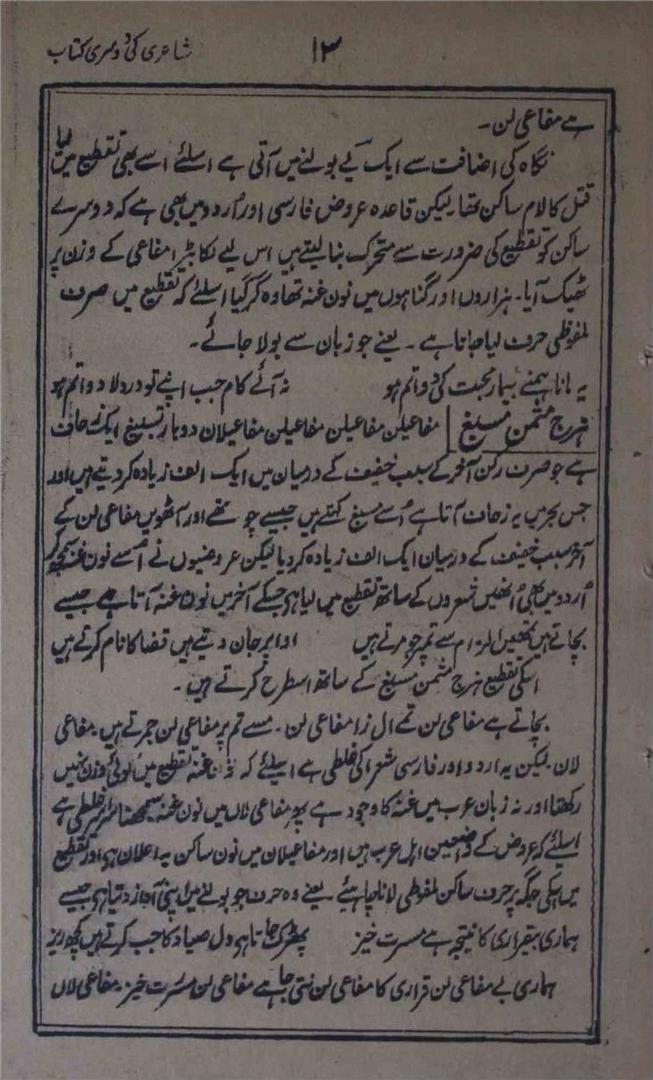 شاعری کی دوسری کتاب
۱۳
ہے مفاعی لن۔
نگاہ کی اضافت سے ایک یے بولنے میں آتی ہے اسلئے اسے بھی تقطیع میں لیا
قتل کا لام ساکن تھا لیکن قاعدہ عروض فارسی اور اُردو میں بھی ہے کہ دوسرے
ساکن کو تقطیع کی ضرورت سے متحرک بنا لیتے ہیں اس لیے مفاعی کے وزن پر
ٹھیک آیا۔ ہزاروں اور گناہوں میں نون غنہ تھا وہ گر گیا اسلئے کہ تقطیع میں صرف
ملفوظی حرف لیا جاتا ہے۔ یعنے جو زبان سے بولا جائے۔
یہ مانا ہمنے بیمار محبت کی دوا تم ہو نہ آئے کام جب اپنے تو درد لا دوا تم ہو
ہزج مثمن مسبغ مفاعیلن مفاعیلن مفاعیلن مفاعیلان دو بار تسبیغ ایک زحاف
ہے جو صرف رکن آخر کے سبب خفیف کے درمیان میں ایک الف زیادہ کر دیتے ہیں اور
جس بحر میں یہ زحاف آتا ہے اُسے مسبغ کہتے ہیں جیسے چوتھے اور آٹھویں مفاعی لن کے
آخر سبب خفیف کے درمیان ایک الف زیادہ کر دیا لیکن عروضیوں نے اُسے نون غنہ سمجھ کر
اُردو میں بھی اُنھیں شعروں کے ساتھ تقطیع میں لیا ہی جسکے آخر میں نون غنہ آتا ہے جیسے
بچاتے ہیں تمھیں الزام سے تم پر جو مرتے ہیں ادا پر جان دیتے ہیں قضا کا نام کرتے ہیں
اسکی تقطیع ہزج مثمن مسبغ کے ساتھ اسطرح کرتے ہیں۔
بچاتے ہے مفاعی لن تمے ال زا مفاعی لن۔ مسے تم پر مفاعی لن جمرتے ہیں۔ مفاعی
لان۔ لیکن یہ اردو اور فارسی شعرا کی غلطی ہے اسلئے کہ غنہ تقطیع میں کوئی وزن نہیں
رکھتا اور نہ زبان عرب میں غنہ کا وجود ہے پھر مفاعی لاں میں نون غنہ سمجھنا سراسر غلطی ہے
اسلئے کہ عروض کے واضعین اہل عرب ہیں اور مفاعیلان میں نون ساکن بہ اعلان ہی اور تقطیع
میں اسکی جگہ پر حرف ساکن ملفوظی لانا چاہیئے۔ یعنے وہ حرف جو بولنے میں اپنی آواز دیتا ہی جیسے
ہماری بیقراری کا نتیجہ ہے مسرت خیز پھڑک جاتا ہی دل صیاد کا جب کرتے ہیں کچھ ریز
ہماری بے مفاعی لن قراری کا مفاعی لن نتی جا ہے مفاعی لن مسرت خیز۔ مفاعی لاں